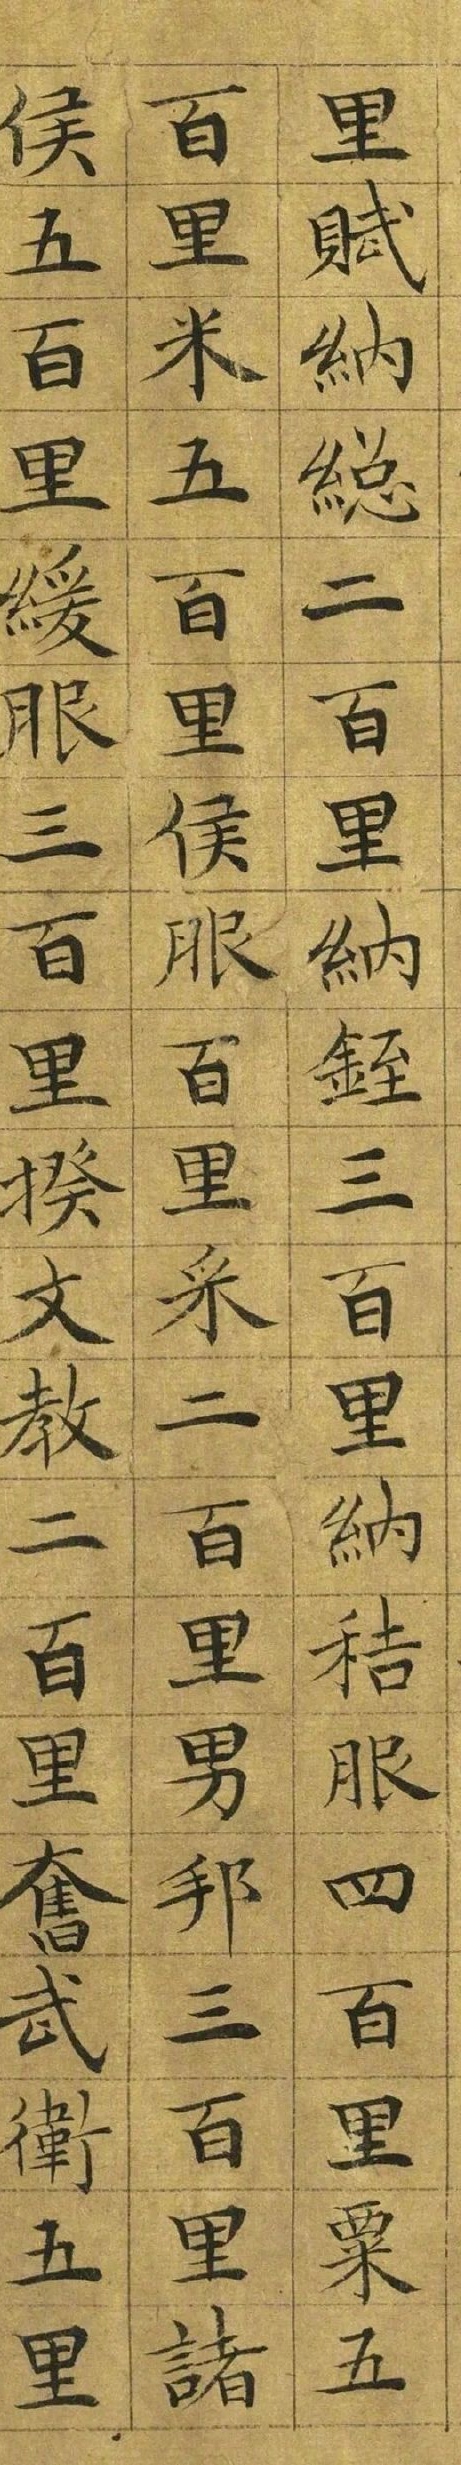 里賦納総二百里納銍三百里納秸服四百里粟五
百里米五百里侯服百里采二百里男邦三百里諸
侯五百里綏服三百里揆文教二百里奮武衛五里